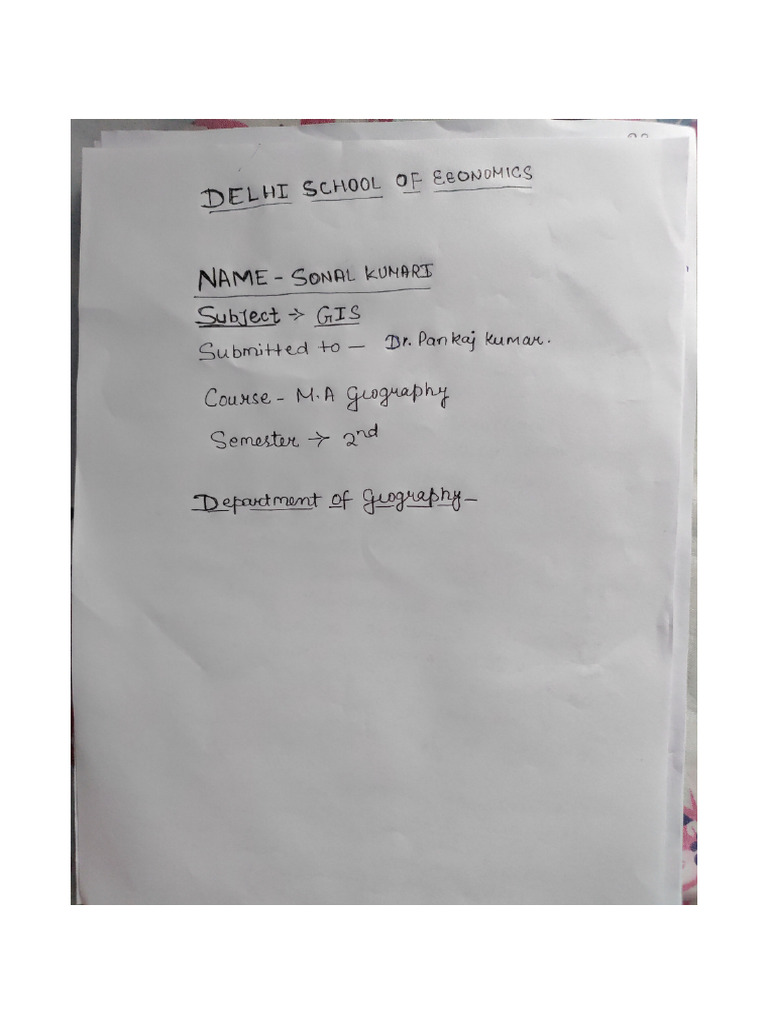 DELHI SCHOOL OF ECONOMICS
NAME - SONAL KUMARI
Subject → GIS
Submitted to - Dr. Pankaj Kumar.
Course - M.A Geography
Semester → 2nd
Department of Geography -